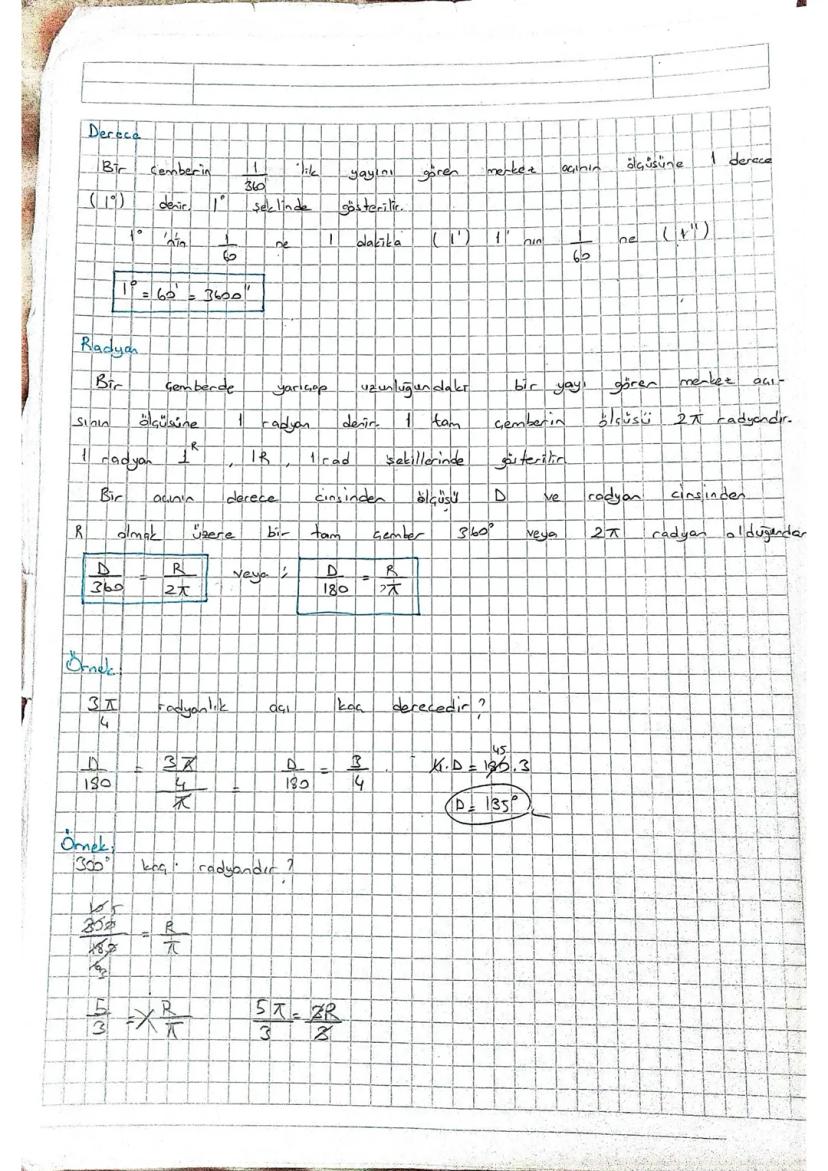 Derece
Bir çemberin 1/360 'lik yayını gören merkez açının ölçüsüne 1 derece
(1°) denir. 1° şeklinde gösterilir.
1° 'nin 1/60 ne 1 dakika (1') 1' nın 1/60 ne (1'')
1° = 60' = 3600''
Radyan
Bir çemberde yarıçap uzunluğundaki bir yayı gören merkez açı-
sının ölçüsüne 1 radyan denir. 1 tam çemberin ölçüsü 2π radyandır.
1 radyan 1ᴿ, 1R, 1 rad şekillerinde gösterilir.
Bir açının derece cinsinden ölçüsü D ve radyan cinsinden
R olmak üzere bir tam çember 360° veya 2π radyan olduğundan
D/360 = R/2π veya; D/180 = R/π
Örnek;
3π/4 radyanlık açı kaç derecedir?
D/180 = (3π/4)/π = D/180 = 3/4 . 4.D = 180.3 45
D = 135°
Örnek;
300° kaç radyandır?
300/180 = R/π
5/3 = R/π 5π/3 = 3R/3